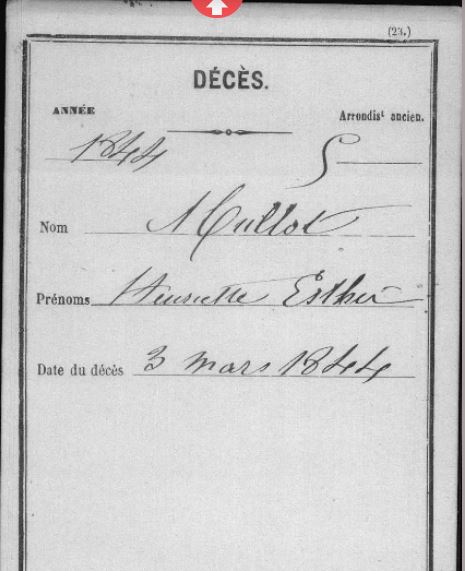 (23.)
DÉCÈS.
ANNÉE
Arrondist ancien.
1844
5
Nom Mullot
Prénoms Henriette Esther
Date du décès 3 mars 1844